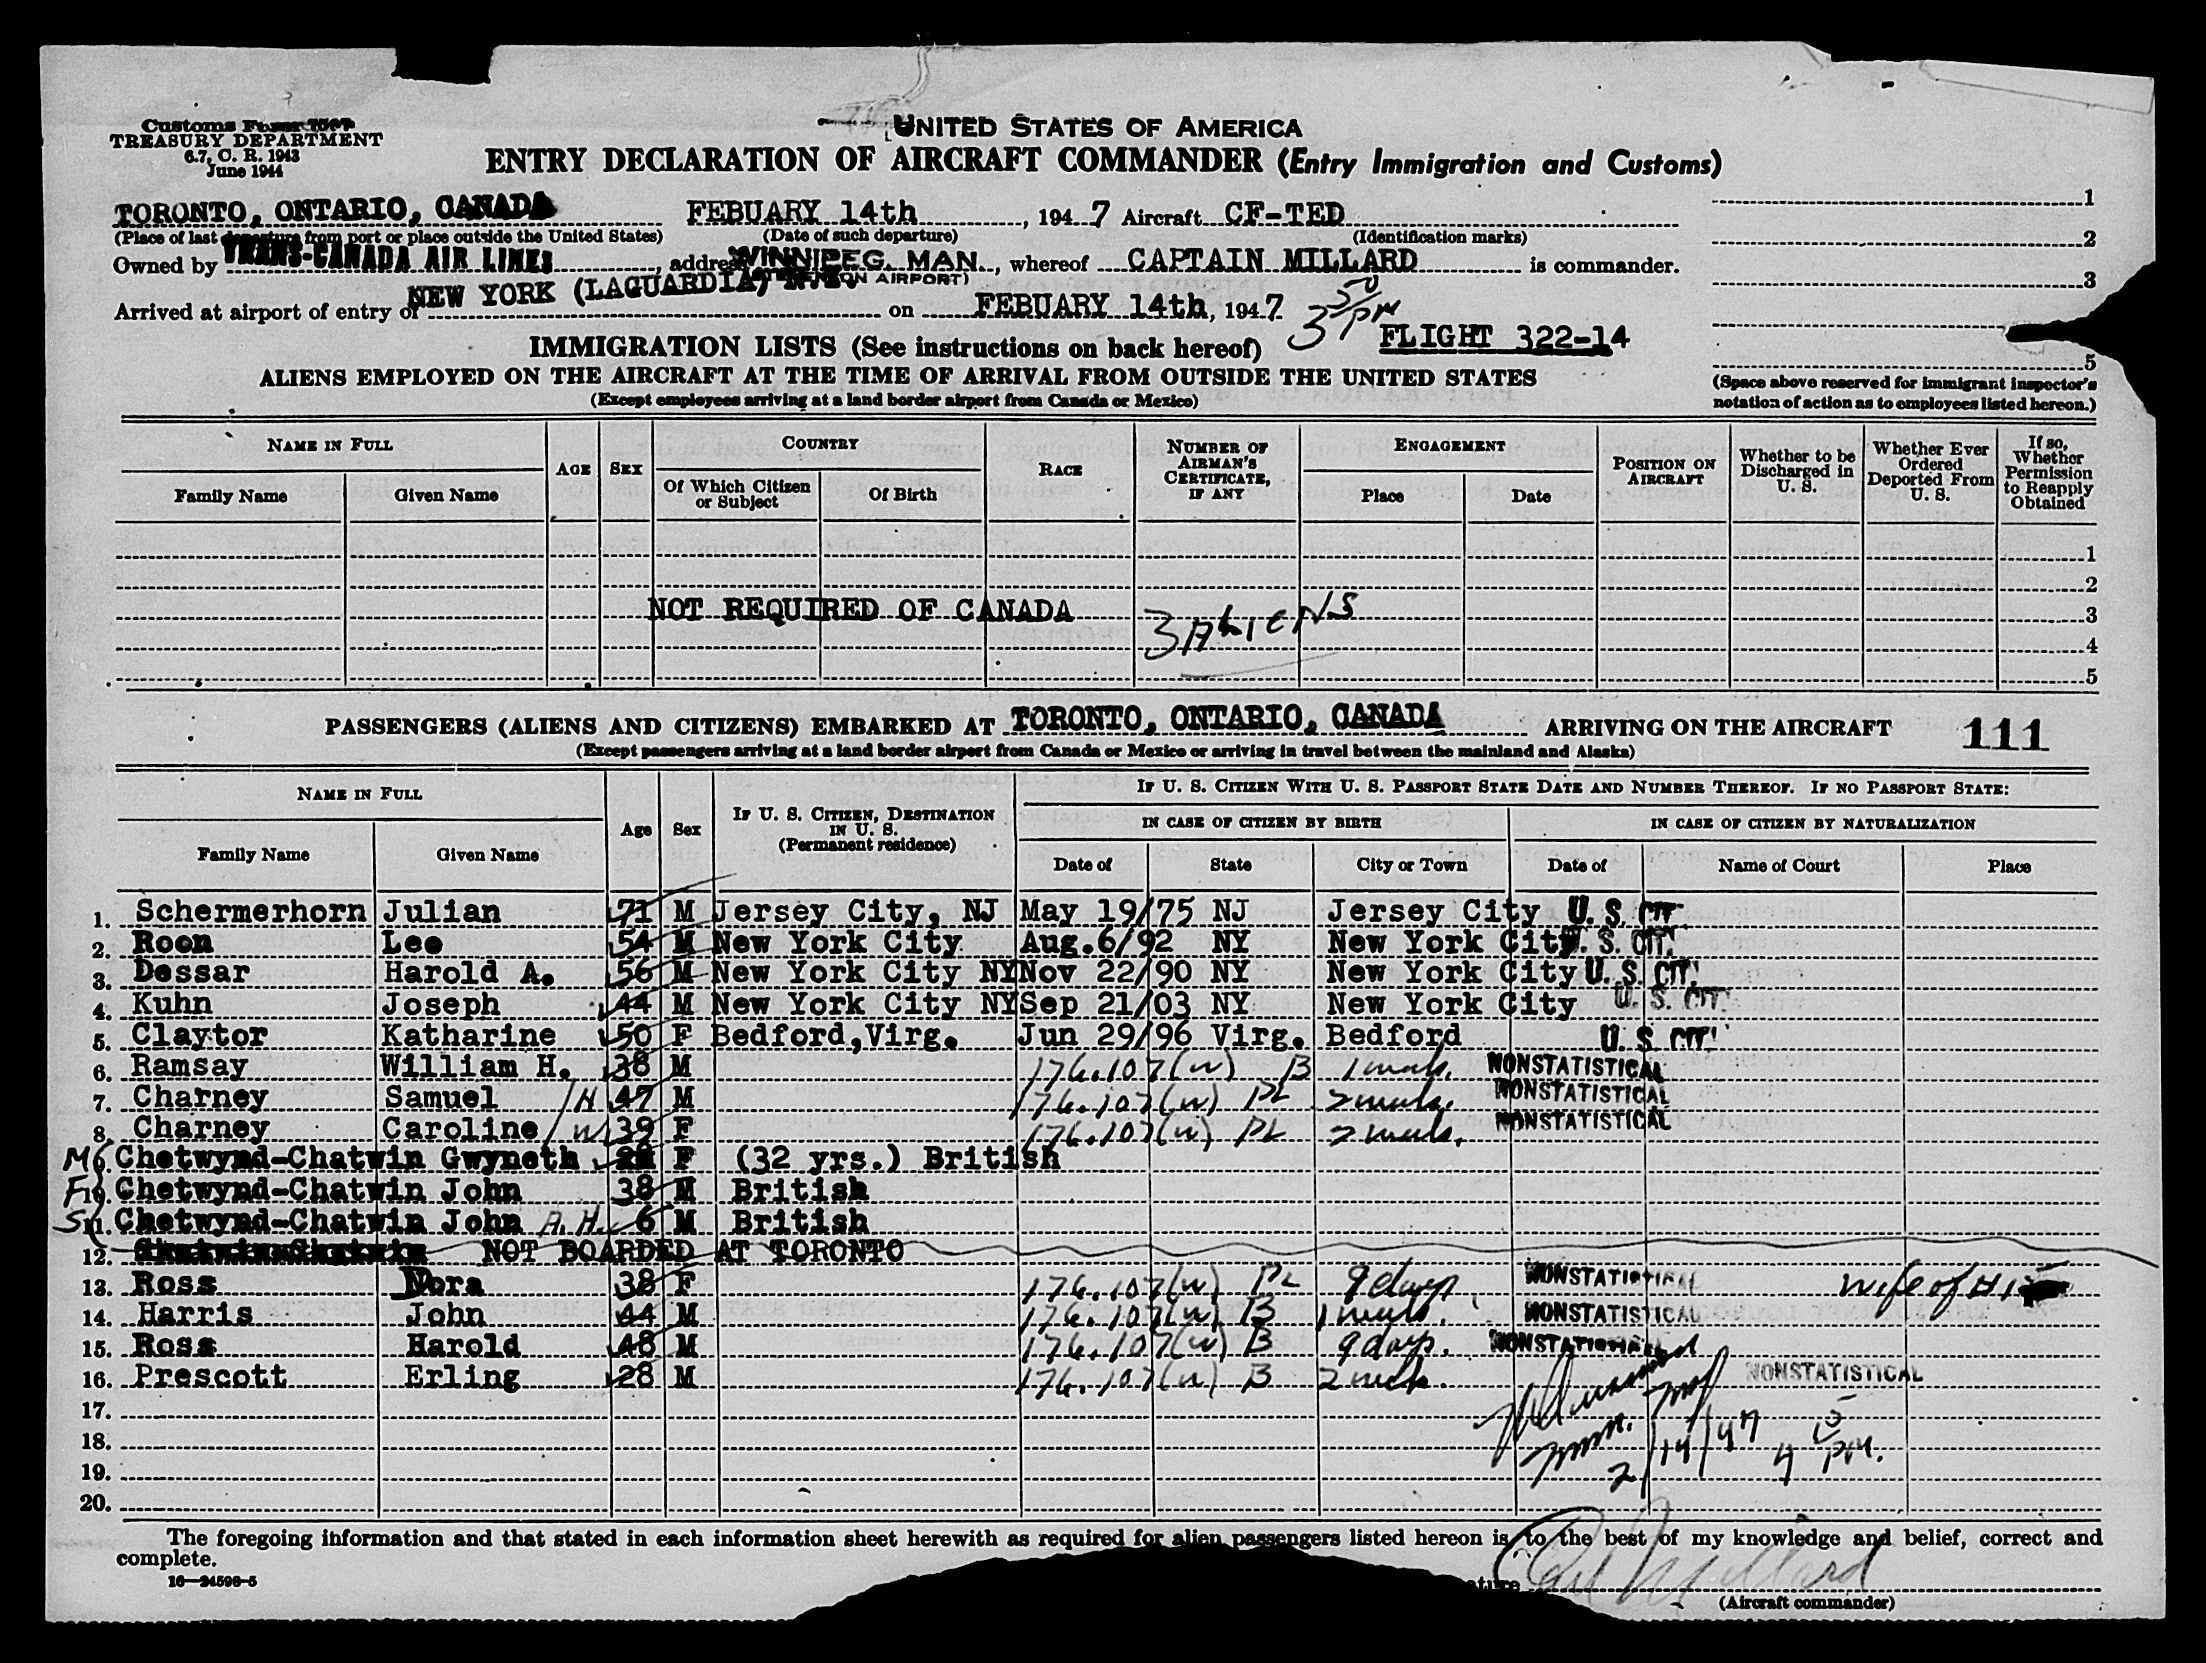 Customs Form 7507
TREASURY DEPARTMENT
6.7, C. R. 1943
June 1944
UNITED STATES OF AMERICA
ENTRY DECLARATION OF AIRCRAFT COMMANDER (Entry Immigration and Customs)
TORONTO, ONTARIO, CANADA FEBUARY 14th, 1947 Aircraft CF-TED
(Place of last departure from port or place outside the United States) (Date of such departure) (Identification marks)
Owned by TRANS-CANADA AIR LINES, address WINNIPEG. MAN., whereof CAPTAIN MILLARD is commander.
Arrived at airport of entry of NEW YORK (LAGUARDIA) N.Y. ON AIRPORT) on FEBUARY 14th, 1947 3 50 PM
FLIGHT 322-14
1
2
3
5
(Space above reserved for immigrant inspector's notation of action as to employees listed hereon.)
IMMIGRATION LISTS (See instructions on back hereof)
ALIENS EMPLOYED ON THE AIRCRAFT AT THE TIME OF ARRIVAL FROM OUTSIDE THE UNITED STATES
(Except employees arriving at a land border airport from Canada or Mexico)
NAME IN FULL AGE SEX COUNTRY RACE NUMBER OF AIRMAN'S CERTIFICATE, IF ANY ENGAGEMENT POSITION ON AIRCRAFT Whether to be Discharged in U. S. Whether Ever Ordered Deported From U. S. If so, Whether Permission to Reapply Obtained
Family Name Given Name Of Which Citizen or Subject Of Birth Place Date
1
2
NOT REQUIRED OF CANADA 3 ALIENS 3
4
5
PASSENGERS (ALIENS AND CITIZENS) EMBARKED AT TORONTO, ONTARIO, CANADA ARRIVING ON THE AIRCRAFT 111
(Except passengers arriving at a land border airport from Canada or Mexico or arriving in travel between the mainland and Alaska)
NAME IN FULL Age Sex IF U. S. CITIZEN, DESTINATION IN U. S. (Permanent residence) IF U. S. CITIZEN WITH U. S. PASSPORT STATE DATE AND NUMBER THEREOF. IF NO PASSPORT STATE:
IN CASE OF CITIZEN BY BIRTH IN CASE OF CITIZEN BY NATURALIZATION
Family Name Given Name Date of State City or Town Date of Name of Court Place
1. Schermerhorn Julian 71 M Jersey City, NJ May 19/75 NJ Jersey City U. S. CIT.
2. Roon Lee 54 M New York City Aug.6/92 NY New York City U. S. CIT.
3. Dessar Harold A. 56 M New York City NY Nov 22/90 NY New York City U. S. CIT.
4. Kuhn Joseph 44 M New York City NY Sep 21/03 NY New York City U. S. CIT.
5. Claytor Katharine 50 F Bedford,Virg. Jun 29/96 Virg. Bedford U. S. CIT.
6. Ramsay William H. 38 M 176.107(w) B NONSTATISTICAL
7. Charney Samuel /H 47 M 176.107(w) PL NONSTATISTICAL
8. Charney Caroline /W 39 F 176.107(w) PL NONSTATISTICAL
M Chetwynd-Chatwin Gwyneth F (32 yrs.) British
F 10. Chetwynd-Chatwin John 38 M British
S 11. Chetwynd-Chatwin John A. H. 6 M British
12. NOT BOARDED AT TORONTO
13. Ross Nora 38 F 176.107(w) PL 9 days NONSTATISTICAL wife of #15
14. Harris John 44 M 176.107(w) B NONSTATISTICAL
15. Ross Harold 48 M 176.107(w) B 9 days. NONSTATISTICAL
16. Prescott Erling 28 M 176.107(w) B NONSTATISTICAL
17.
18. 2/14/47 4 15 PM.
19.
20.
The foregoing information and that stated in each information sheet herewith as required for alien passengers listed hereon is to the best of my knowledge and belief, correct and
complete.
16—24598-5
Millard
(Aircraft commander)